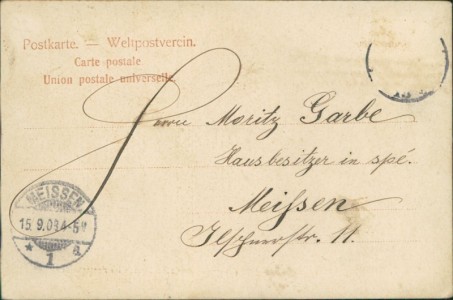 Postkarte. — Weltpostverein.
Carte postale
Union postale universelle.
Herrn Moritz Garbe
Hausbesitzer in spé.
Meißen
11.
MEISSEN
15.9.03.4-5N
* 1 a